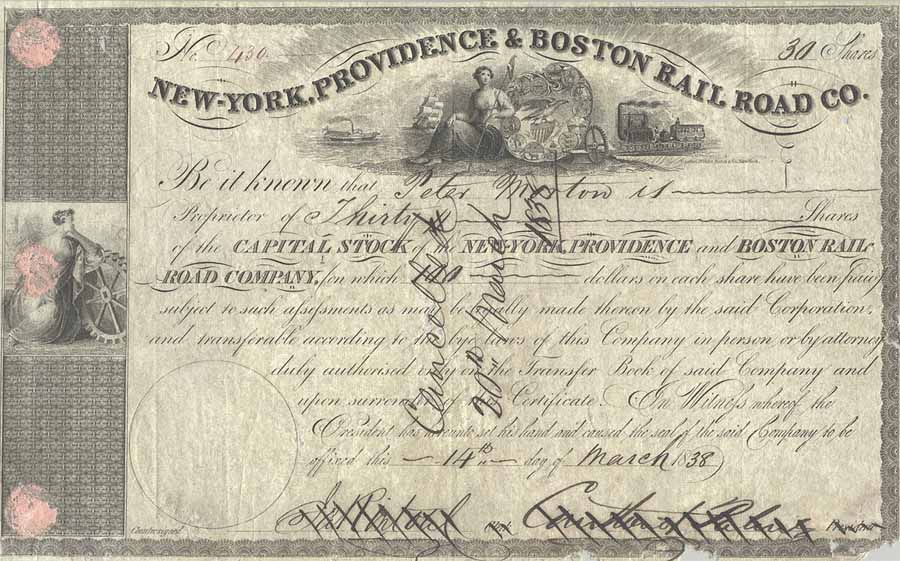 No. 430 30 Shares
NEW-YORK, PROVIDENCE & BOSTON RAIL ROAD CO.
Be it known that Peter Morton is
Proprietor of Thirty Shares
of the CAPITAL STOCK of the NEW-YORK, PROVIDENCE and BOSTON RAIL-
ROAD COMPANY, on which 110 dollars on each share have been paid
subject to such assessments as may be legally made thereon by the said Corporation,
and transferable according to the bye laws of this Company in person or by attorney
duly authorised only on the Transfer Book of said Company and
upon surrender of this Certificate. In Witness whereof the
President has hereunto set his hand and caused the seal of the said Company to be
affixed this 14th day of March 1838
Countersigned Clerk President
Cancelled
20th March 1838